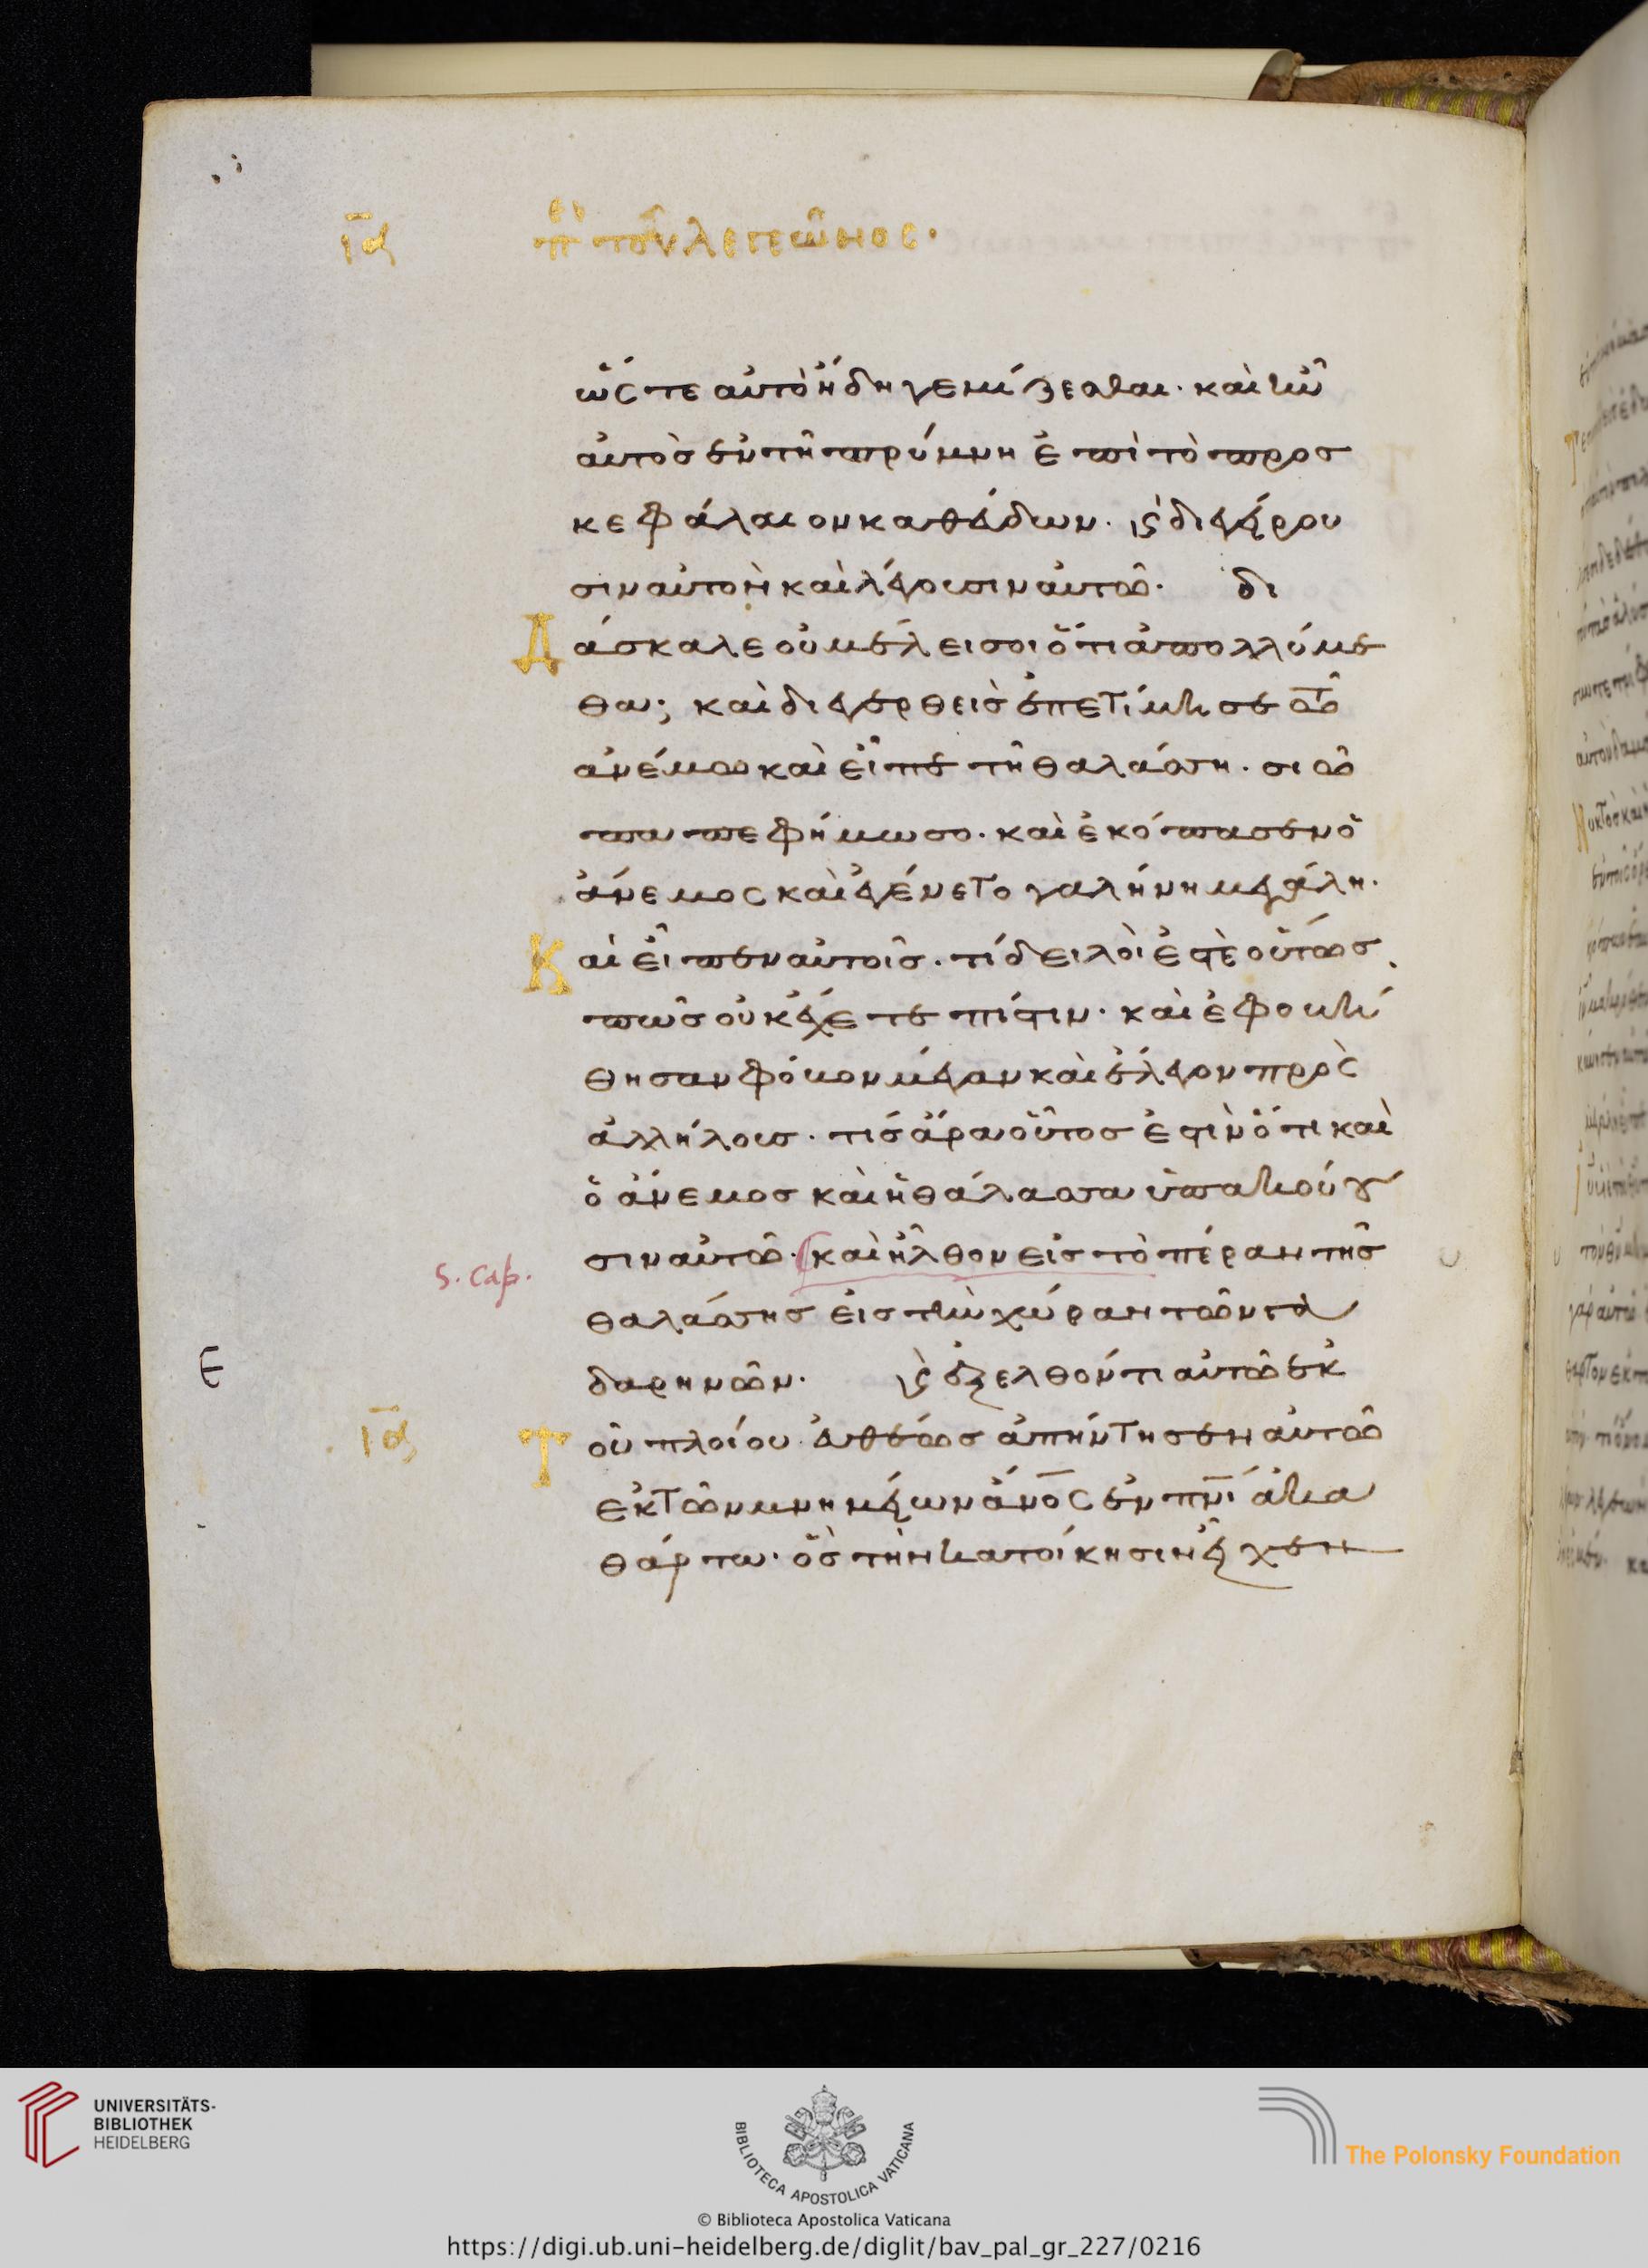 ια π̅ε̅ρ̅ τοῦ λεγεῶνος·
ὥς τε αὐτὸ ἤδη γεμίζεσθαι· καὶ ἦν
αὐτὸσ ἐν τῆ πρύμνη ἐπὶ τὸ προσ
κεφάλαιον καθεύδων· κ̀ διεγείρου
σιν αὐτὸν καὶ λέγουσιν αὐτῶ· δι
δάσκαλε οὐ μέλει σοι ὅτι ἀπολλύμε
θα; καὶ διεγερθεὶσ ἐπετίμησε τῶ
ἀνέμω καὶ εἶπε τῆ θαλάσση· σιώ
πα πεφήμωσο· καὶ ἐκόπασεν ὁ
ἄνεμος καὶ ἐγένετο γαλήνη μεγάλη·
Καὶ εἶπεν αὐτοῖσ· τί δειλοὶ ἐστὲ οὕτωσ
πῶσ οὐκ ἔχετε πίστιν· καὶ ἐφοβή
θησαν φόβον μέγαν καὶ ἔλεγον πρὸς
ἀλλήλουσ· τίσ ἄρα οὗτοσ ἐστὶν ὅτι καὶ
ὁ ἄνεμοσ καὶ ἡ θάλασσα ὑπακούου
σιν αὐτῶ· καὶ ἦλθον εἰσ τὸ πέραν τῆσ
S. Cap.
θαλάσσησ εἰσ τὴν χώραν τῶν γα
Ε δαρηνῶν· κ̀ ἐξελθόντι αὐτῶ ἐκ
ια Τοῦ πλοίου εὐθέωσ ἀπήντησεν αὐτῶ
ἐκ τῶν μνημείων ἄνος ἐν πνι ἀκα
θάρτω· ὃσ τὴν κατοίκησιν εἶχεν
UNIVERSITÄTS-
BIBLIOTHEK
HEIDELBERG
BIBLIOTECA APOSTOLICA VATICANA
The Polonsky Foundation
© Biblioteca Apostolica Vaticana
https://digi.ub.uni-heidelberg.de/diglit/bav_pal_gr_227/0216